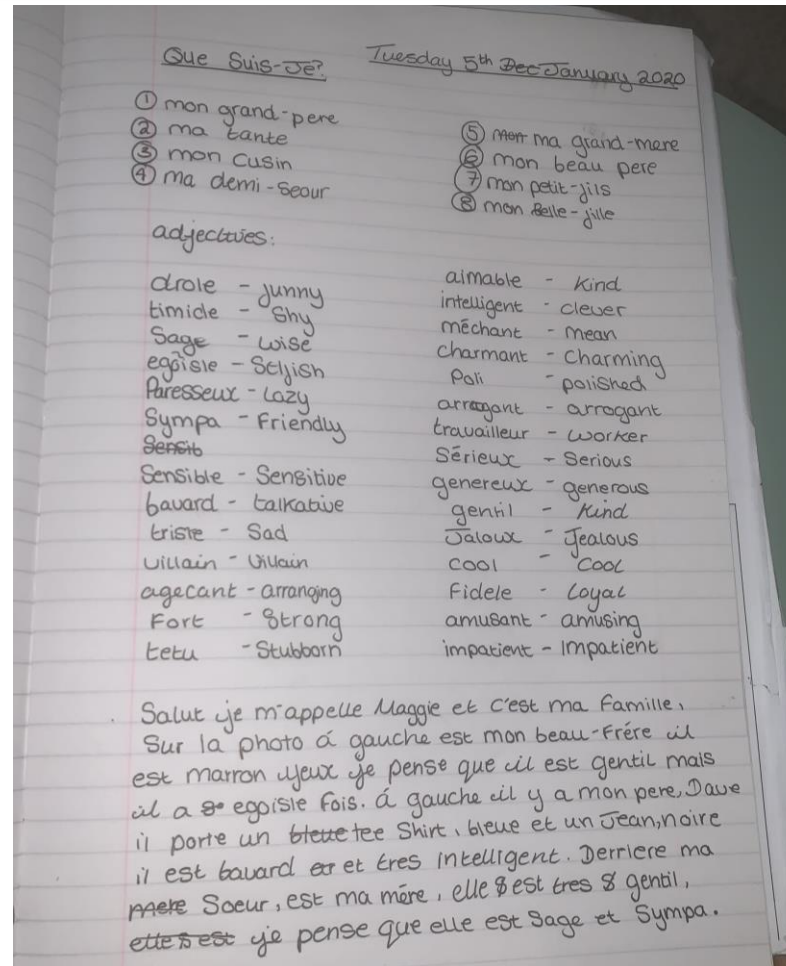 Que Suis-Je? Tuesday 5th Dec January 2020
① mon grand-pere
② ma tante
③ mon cusin
④ ma demi-seour
⑤ mon ma grand-mere
⑥ mon beau pere
⑦ mon petit-fils
⑧ mon Belle-fille
adjectives:
drole - funny
timide - Shy
Sage - wise
egoïste - Selfish
Paresseux - Lazy
Sympa - Friendly
Sensib
Sensible - Sensitive
bavard - talkative
triste - Sad
villain - Villain
agecant - arranging
Fort - Strong
tetu - Stubborn
aimable - Kind
intelligent - clever
mēchant - mean
charmant - Charming
Poli - polished
arrogant - arrogant
travailleur - worker
Sērieux - Serious
genereux - generous
gentil - Kind
Jaloux - Jealous
cool - Cool
Fidele - Loyal
amusant - amusing
impatient - Impatient
Salut je m'appelle Maggie et c'est ma famille,
Sur la photo á gauche est mon beau-Frére il
est marron yeux je pense que il est gentil mais
il a egoiste fois. á gauche il y a mon pere, Dave
il porte un bleue tee Shirt, bleue et un Jean, noire
il est bavard et tres intelligent. Derriere ma
mere Soeur, est ma mére, elle est tres gentil,
elle s est je pense que elle est Sage et Sympa.